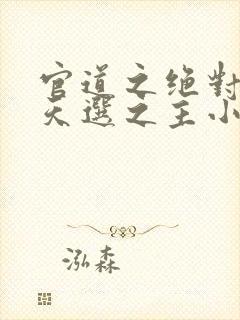 官道之绝對
天選之主小
泓森